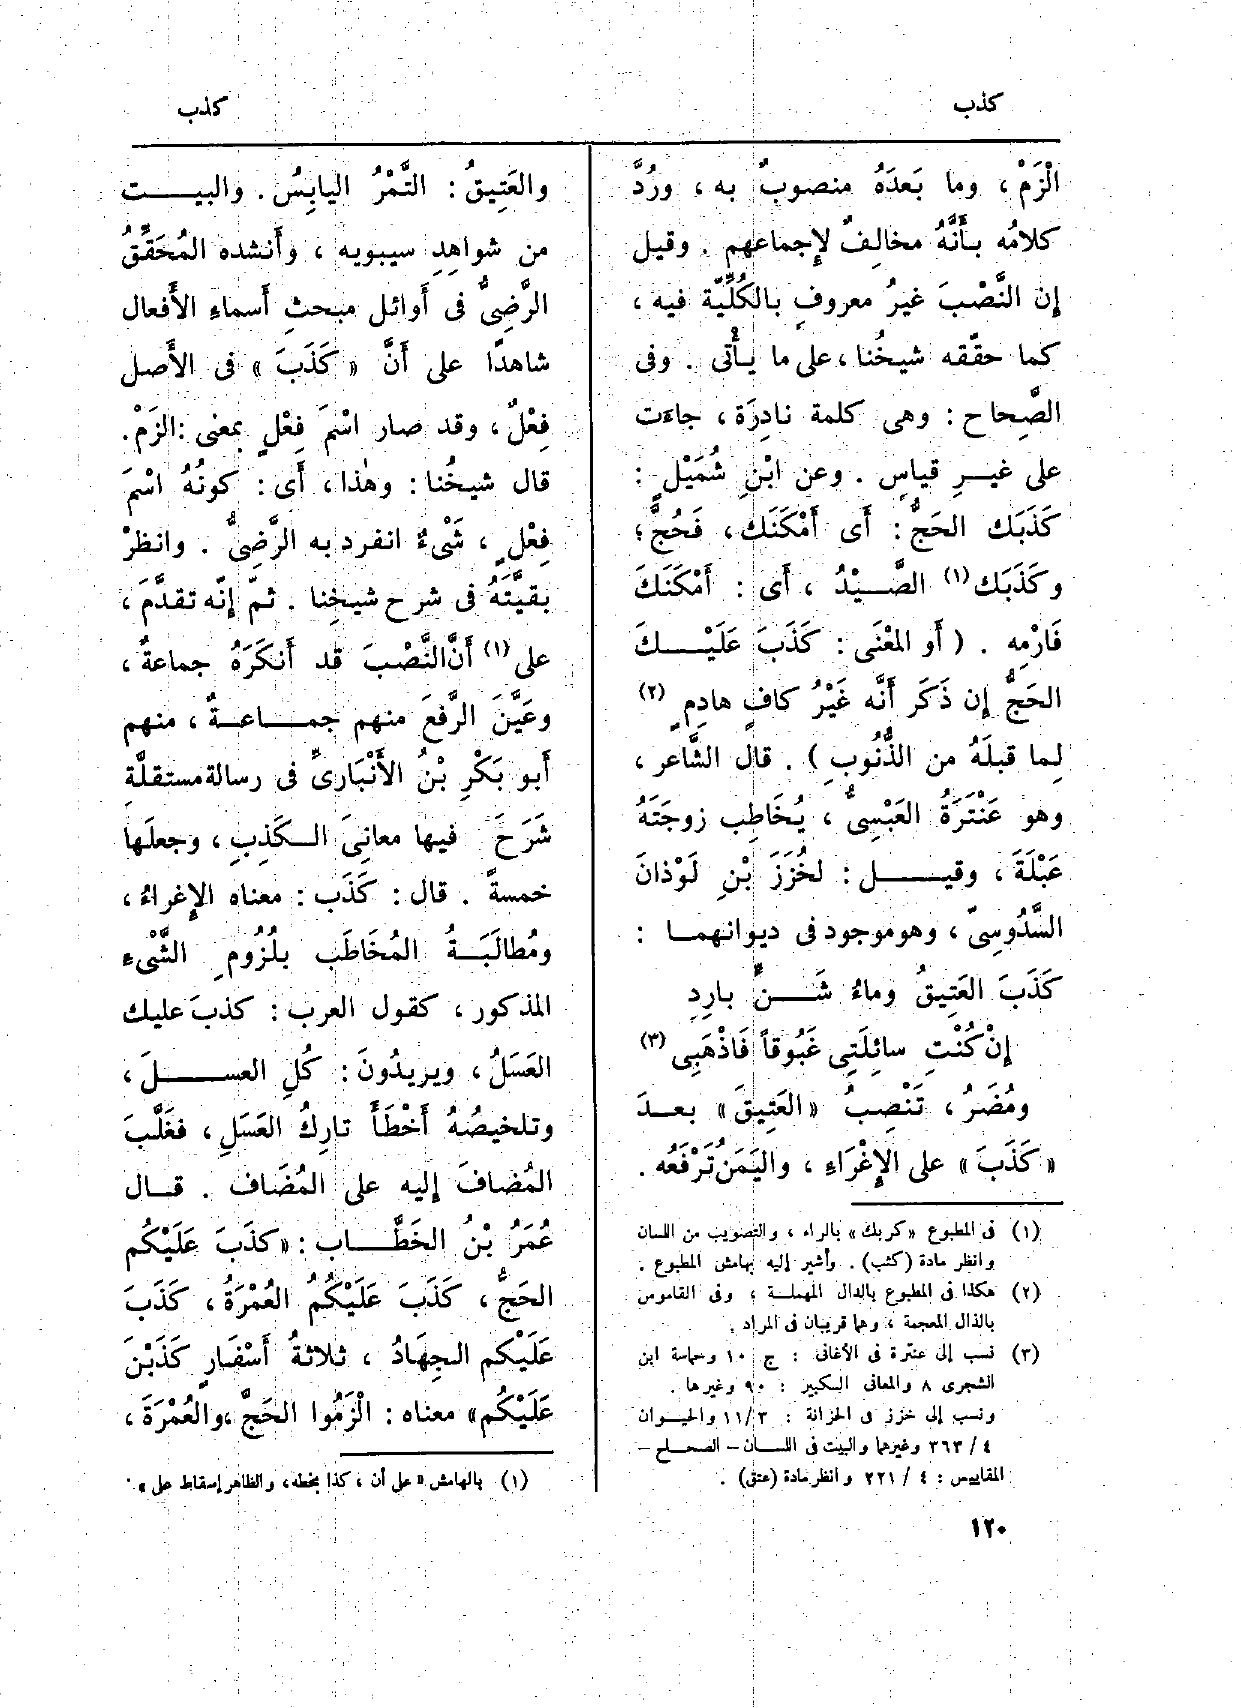 كذب
كذب
الْزَمْ ، وما بَعدَهُ منصوبٌ به ، ورُدَّ
كلامُه بأَنَّهُ مخالِفٌ لإِجماعهم . وقيل
إن النَّصْبَ غيرُ معروفٍ بالكُلِّيّة فيه ،
كما حقّقه شيخُنا ، على ما يأْتى . وفى
الصّحاح : وهى كلمة نادِرَة ، جاءَت
على غيرِ قياسٍ . وعن ابْنِ شُمَيْلٍ :
كَذَبَك الحَجُّ : أَى أَمْكَنَك ، فَحُجَّ ؛
وكَذَبَك (١) الصَّيْدُ ، أَى : أَمْكَنَكَ
فَارْمِه . ( أَو المعْنَى : كَذَبَ عَلَيْكَ
الحَجُّ إن ذَكَر أَنَّه غَيْرُ كافٍ هادِمٍ (٢)
لِما قبلَهُ من الذُّنُوبِ ) . قال الشَّاعر ،
وهو عَنْتَرَةُ العَبْسِىُّ ، يُخَاطِب زوجَتَهُ
عَبْلَةَ ، وقيل : لخُزَزَ بْنِ لَوْذانَ
السَّدُوسِىّ ، وهو موجود فى ديوانهما :
كَذَبَ العَتِيقُ وماءُ شَنٍّ بارِدٍ
إنْ كُنْتِ سائِلَتِى غَبُوقاً فَاذْهَبِى (٣)
ومُضَرُ ، تَنْصِبُ « العَتِيقَ » بعدَ
« كَذَبَ » على الإِغْرَاءِ ، واليَمَنُ تَرْفَعُه .
(١) فى المطبوع « كربك » بالراء ، والتصويب من اللسان
وانظر مادة (كثب) . وأشير إليه بهامش المطبوع .
(٢) هكذا فى المطبوع بالدال المهملة ؛ وفى القاموس
بالذال المعجمة ، وهما قريبان فى المراد .
(٣) نسب إلى عنترة فى الأغانى : ج ١٠ وحماسة ابن
الشجرى ٨ والمعانى الكبير : ٩٠ وغيرها .
ونسب إلى خزز فى الخزانة : ١١/٣ والحيوان
٤ / ٣٦٣ وغيرها والبيت فى اللسان – الصحاح –
المقاييس : ٤ / ٢٢١ وانظر مادة (عتق) .
والعَتِيقُ : التَّمْرُ اليابِسُ . والبيت
من شواهِدِ سيبويه ، وأَنشده المُحَقِّقُ
الرَّضِىُّ فى أَوائل مبحثِ أَسماءِ الأَفعال
شاهدًا على أَنَّ « كَذَبَ » فى الأَصل
فِعْلٌ ، وقد صار اسْمَ فِعْلٍ بمعنى : الزَمْ .
قال شيخُنا : وهٰذا ، أَى : كونُهُ اسْمَ
فِعْلٍ ، شَىْءٌ انفرد به الرَّضِىُّ . وانظرْ
بقيَّتَهُ فى شرح شيخِنا . ثمّ إنّه تقدَّمَ ،
على (١) أَنَّ النَّصْبَ قد أَنكَرَهُ جماعةٌ ،
وعَيَّنَ الرَّفْعَ منهم جماعةٌ ، منهم
أَبو بَكْرِ بْنُ الأَنْبَارىِّ فى رسالة مستقلَّةٍ
شَرَحَ فيها معانِىَ الكَذِبِ ، وجعلَها
خمسةً . قال : كَذَب : معناه الإغراءُ ،
ومُطالَبَةُ المُخَاطَب بلُزُومِ الشَّىْءِ
المذكور ، كقول العرب : كذبَ عليك
العَسَلُ ، ويريدُونَ : كُلِ العسلَ ،
وتلخيصُهُ أَخْطَأَ تارِكُ العَسَلِ ، فغَلَّبَ
المُضافَ إليه على المُضَاف . قال
عُمَرُ بْنُ الخَطَّابِ : « كذَبَ عَلَيْكُم
الحَجُّ ، كَذَبَ عَلَيْكُمُ العُمْرَةُ ، كَذَبَ
عَلَيْكم الجِهَادُ ، ثلاثةُ أَسْفَارٍ كَذَبْنَ
عَلَيْكُم » معناه : الْزَمُوا الحَجَّ ، والعُمْرَةَ ،
(١) بالهامش « على أن ، كذا بخطه ، والظاهر إسقاط على » .
١٢٠